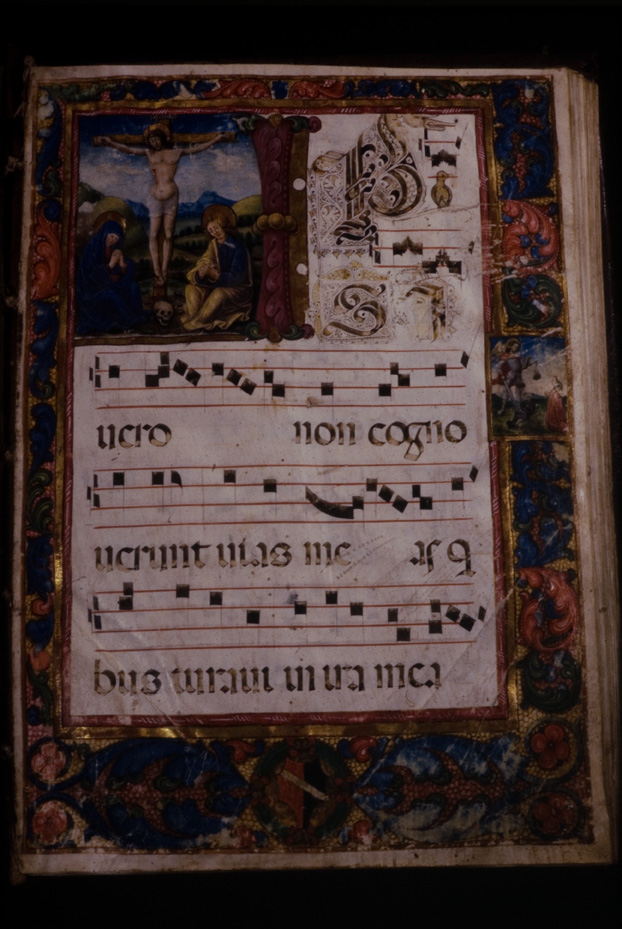 I P
SI
uero non cogno
uerunt uias me as q
bus iuraui in ira mea